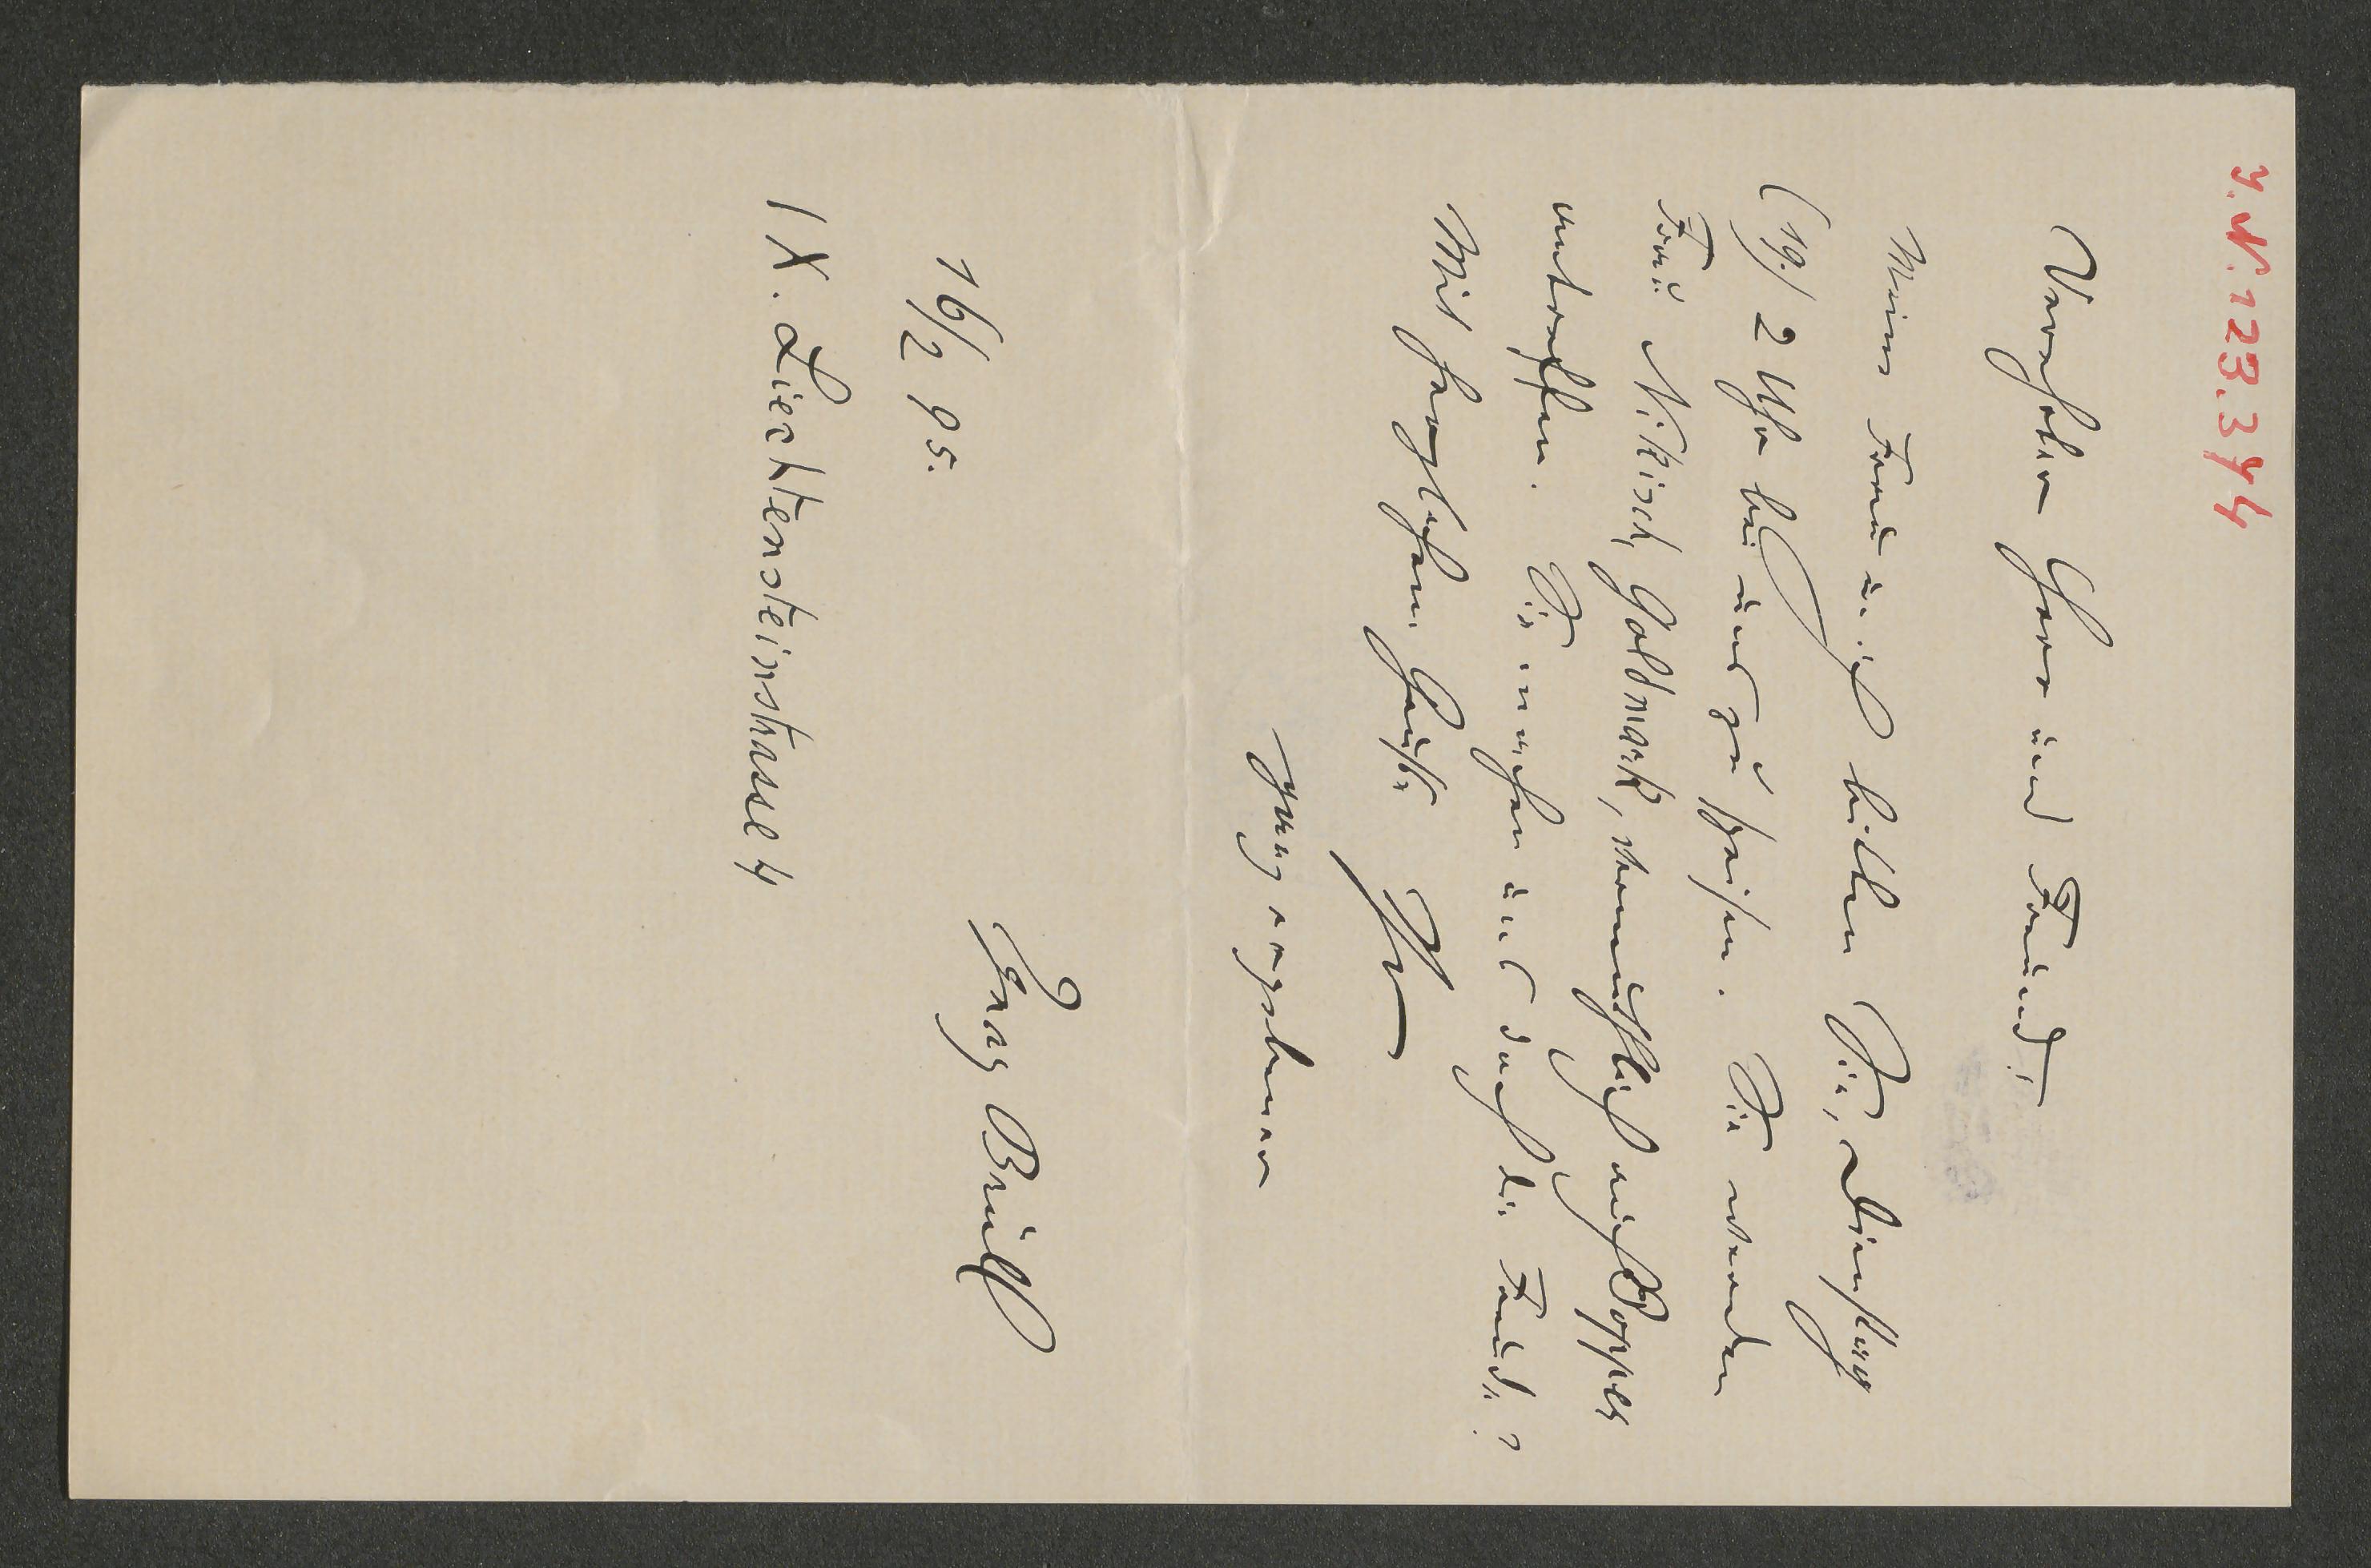 I.N. 123.344
Verehrter Herr und Freund!
Meine Frau u. ich bitten Sie, Dienstag
(19.) 2 Uhr bei uns zu speisen. Sie werden
Frau Nikisch, Goldmark, vermuthlich auch Popper
antreffen. Sie machen uns doch die Freude?
Mit herzlichem Gruße Ihr
ganz ergebener
Ignaz Brüll
16/2 95.
IX. Liechtensteinstrasse 4